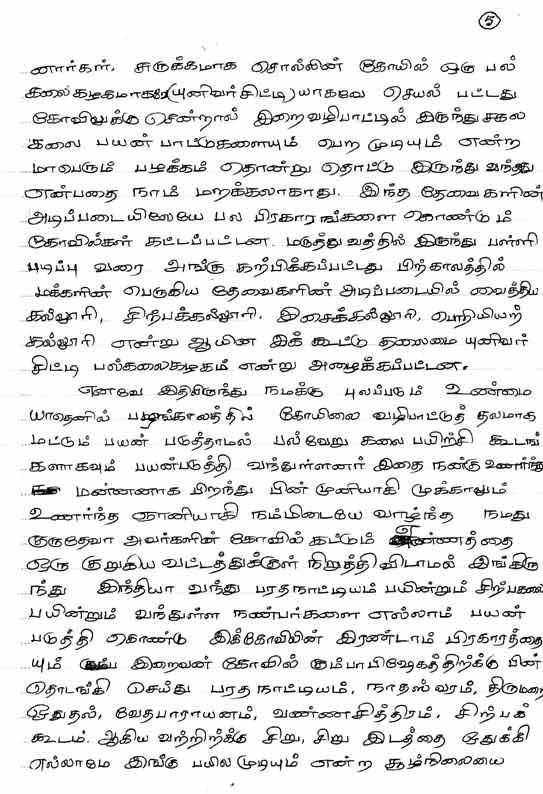 5
னார்கள். சுருக்கமாக சொல்லின் கோயில் ஒரு பல்
கலைகழகமாகவே (யுனிவர்சிட்டி)யாகவே செயல் பட்டது
கோவிலுக்கு சென்றால் இறைவழிபாட்டில் இருந்து சகல
கலை பயன் பாட்டுகளையும் பெற முடியும் என்ற
மாபெரும் பழக்கம் தொன்று தொட்டு இருந்து வந்தது
என்பதை நாம் மறக்கலாகாது. இந்த தேவைகளின்
அடிப்படையிலேயே பல பிரகாரங்களை கொண்டும்
கோவில்கள் கட்டப்பட்டன. மருத்துவத்தில் இருந்து பள்ளி
படிப்பு வரை அங்கு கற்பிக்கப்பட்டது பிற்காலத்தில்
மக்களின் பெருகிய தேவைகளின் அடிப்படையில் வைத்திய
கல்லூரி, சிற்பக்கல்லூரி, இசைக்கல்லூரி, பொறியியற்
கல்லூரி என்று ஆயின இக் கூட்டு தலைமை யுனிவர்
சிட்டி பல்கலைகழகம் என்று அழைக்கப்பட்டன.
எனவே இதிலிருந்து நமக்கு புலப்படும் உண்மை
யாதெனில் பழங்காலத்தில் கோயிலை வழிபாட்டுத் தலமாக
மட்டும் பயன் படுத்தாமல் பல்வேறு கலை பயிற்சி கூடங்
களாகவும் பயன்படுத்தி வந்துள்ளனர் இதை நன்கு உணர்ந்த
மன்னனாக பிறந்து பின் முனியாகி முக்காலும்
உணர்ந்த ஞானியாகி நம்மிடையே வாழ்ந்த நமது
குருதேவா அவர்களின் கோவில் கட்டும் எண்ணத்தை
ஒரு குறுகிய வட்டத்துக்குள் நிறுத்திவிடாமல் இங்கிரு
ந்து இந்தியா வந்து பரதநாட்டியம் பயின்றும் சிற்பகலை
பயின்றும் வந்துள்ள நண்பர்களை எல்லாம் பயன்
படுத்தி கொண்டு இக்கோவிலின் இரண்டாம் பிரகாரத்தை
யும் இறைவன் கோவில் கும்பாபிஷேகத்திற்க்கு பின்
தொடங்கி செய்து பரதநாட்டியம், நாதஸ்வரம், திருமறை
ஓதுதல், வேதபாராயனம், வண்ணசித்திரம், சிற்பக்
கூடம். ஆகிய வற்றிற்க்கு சிறு, சிறு இடத்தை ஒதுக்கி
எல்லாமே இங்கு பயிலமுடியும் என்ற சூழ்நிலையை